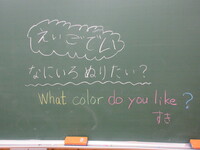 えいごでい
なにいろ ぬりたい？
What color do you like ?
すき